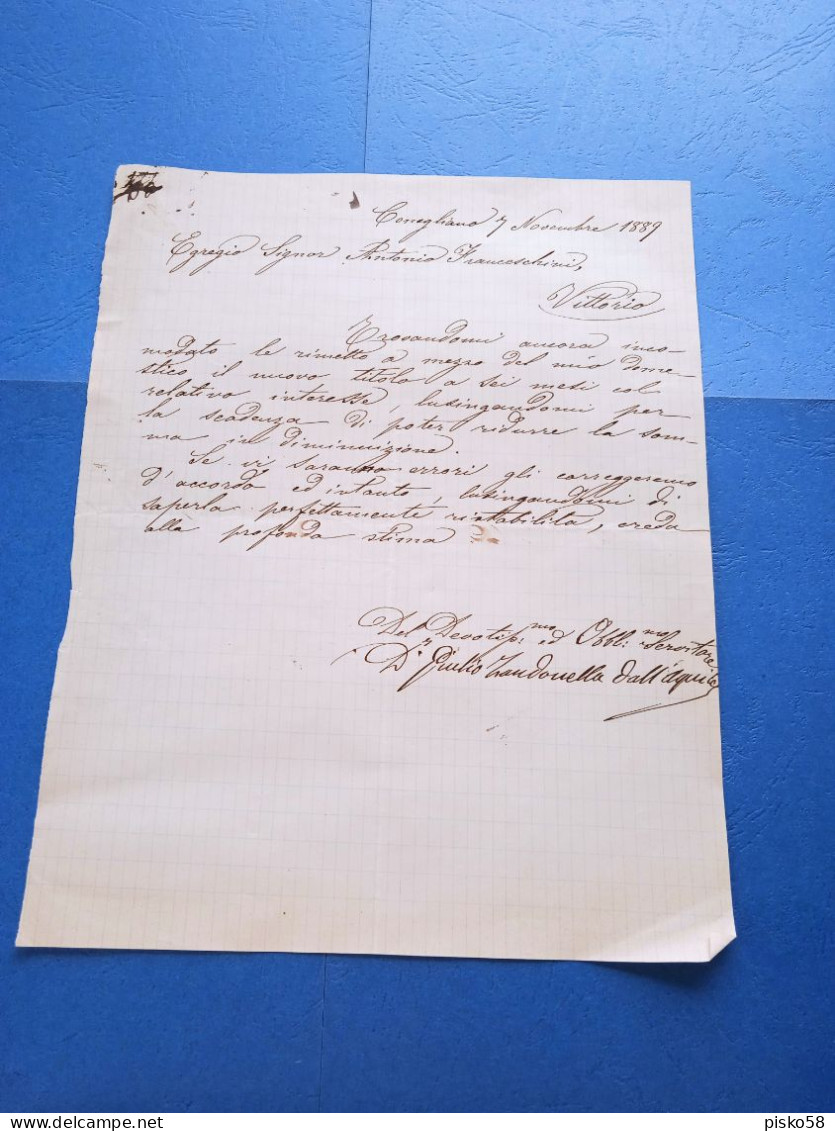 Conegliano 7 Novembre 1889
Egregio Signor Antonio Franceschini,
Vittorio
Trovandomi ancora inco-
modato le rimetto a mezzo del mio dome-
stico il nuovo titolo a sei mesi col
relativo interesse, lusingandomi per
la scadenza di poter ridurre la som-
ma in diminuizione.
Se vi saranno errori gli correggeremo
d'accordo ed intanto, lusingandomi di
saperla perfettamente ristabilita, creda
alla profonda stima
Del Devotiss:mo ed Obbl:mo Servitore
D.r Giulio Zandonella dall'Aquila
delcampe.net
pisko58